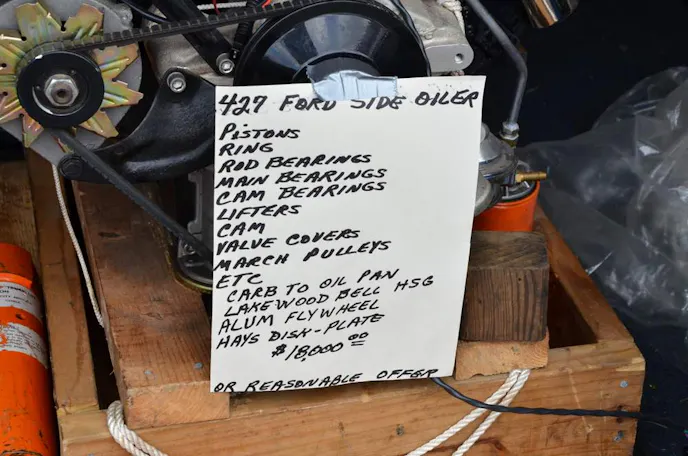 427 FORD SIDE OILER
PISTONS
RING
ROD BEARINGS
MAIN BEARINGS
CAM BEARINGS
LIFTERS
CAM
VALVE COVERS
MARCH PULLEYS
ETC
CARB TO OIL PAN
LAKEWOOD BELL HSG
ALUM FLYWHEEL
HAYS DISK-PLATE
$18,000 00
OR REASONABLE OFFER